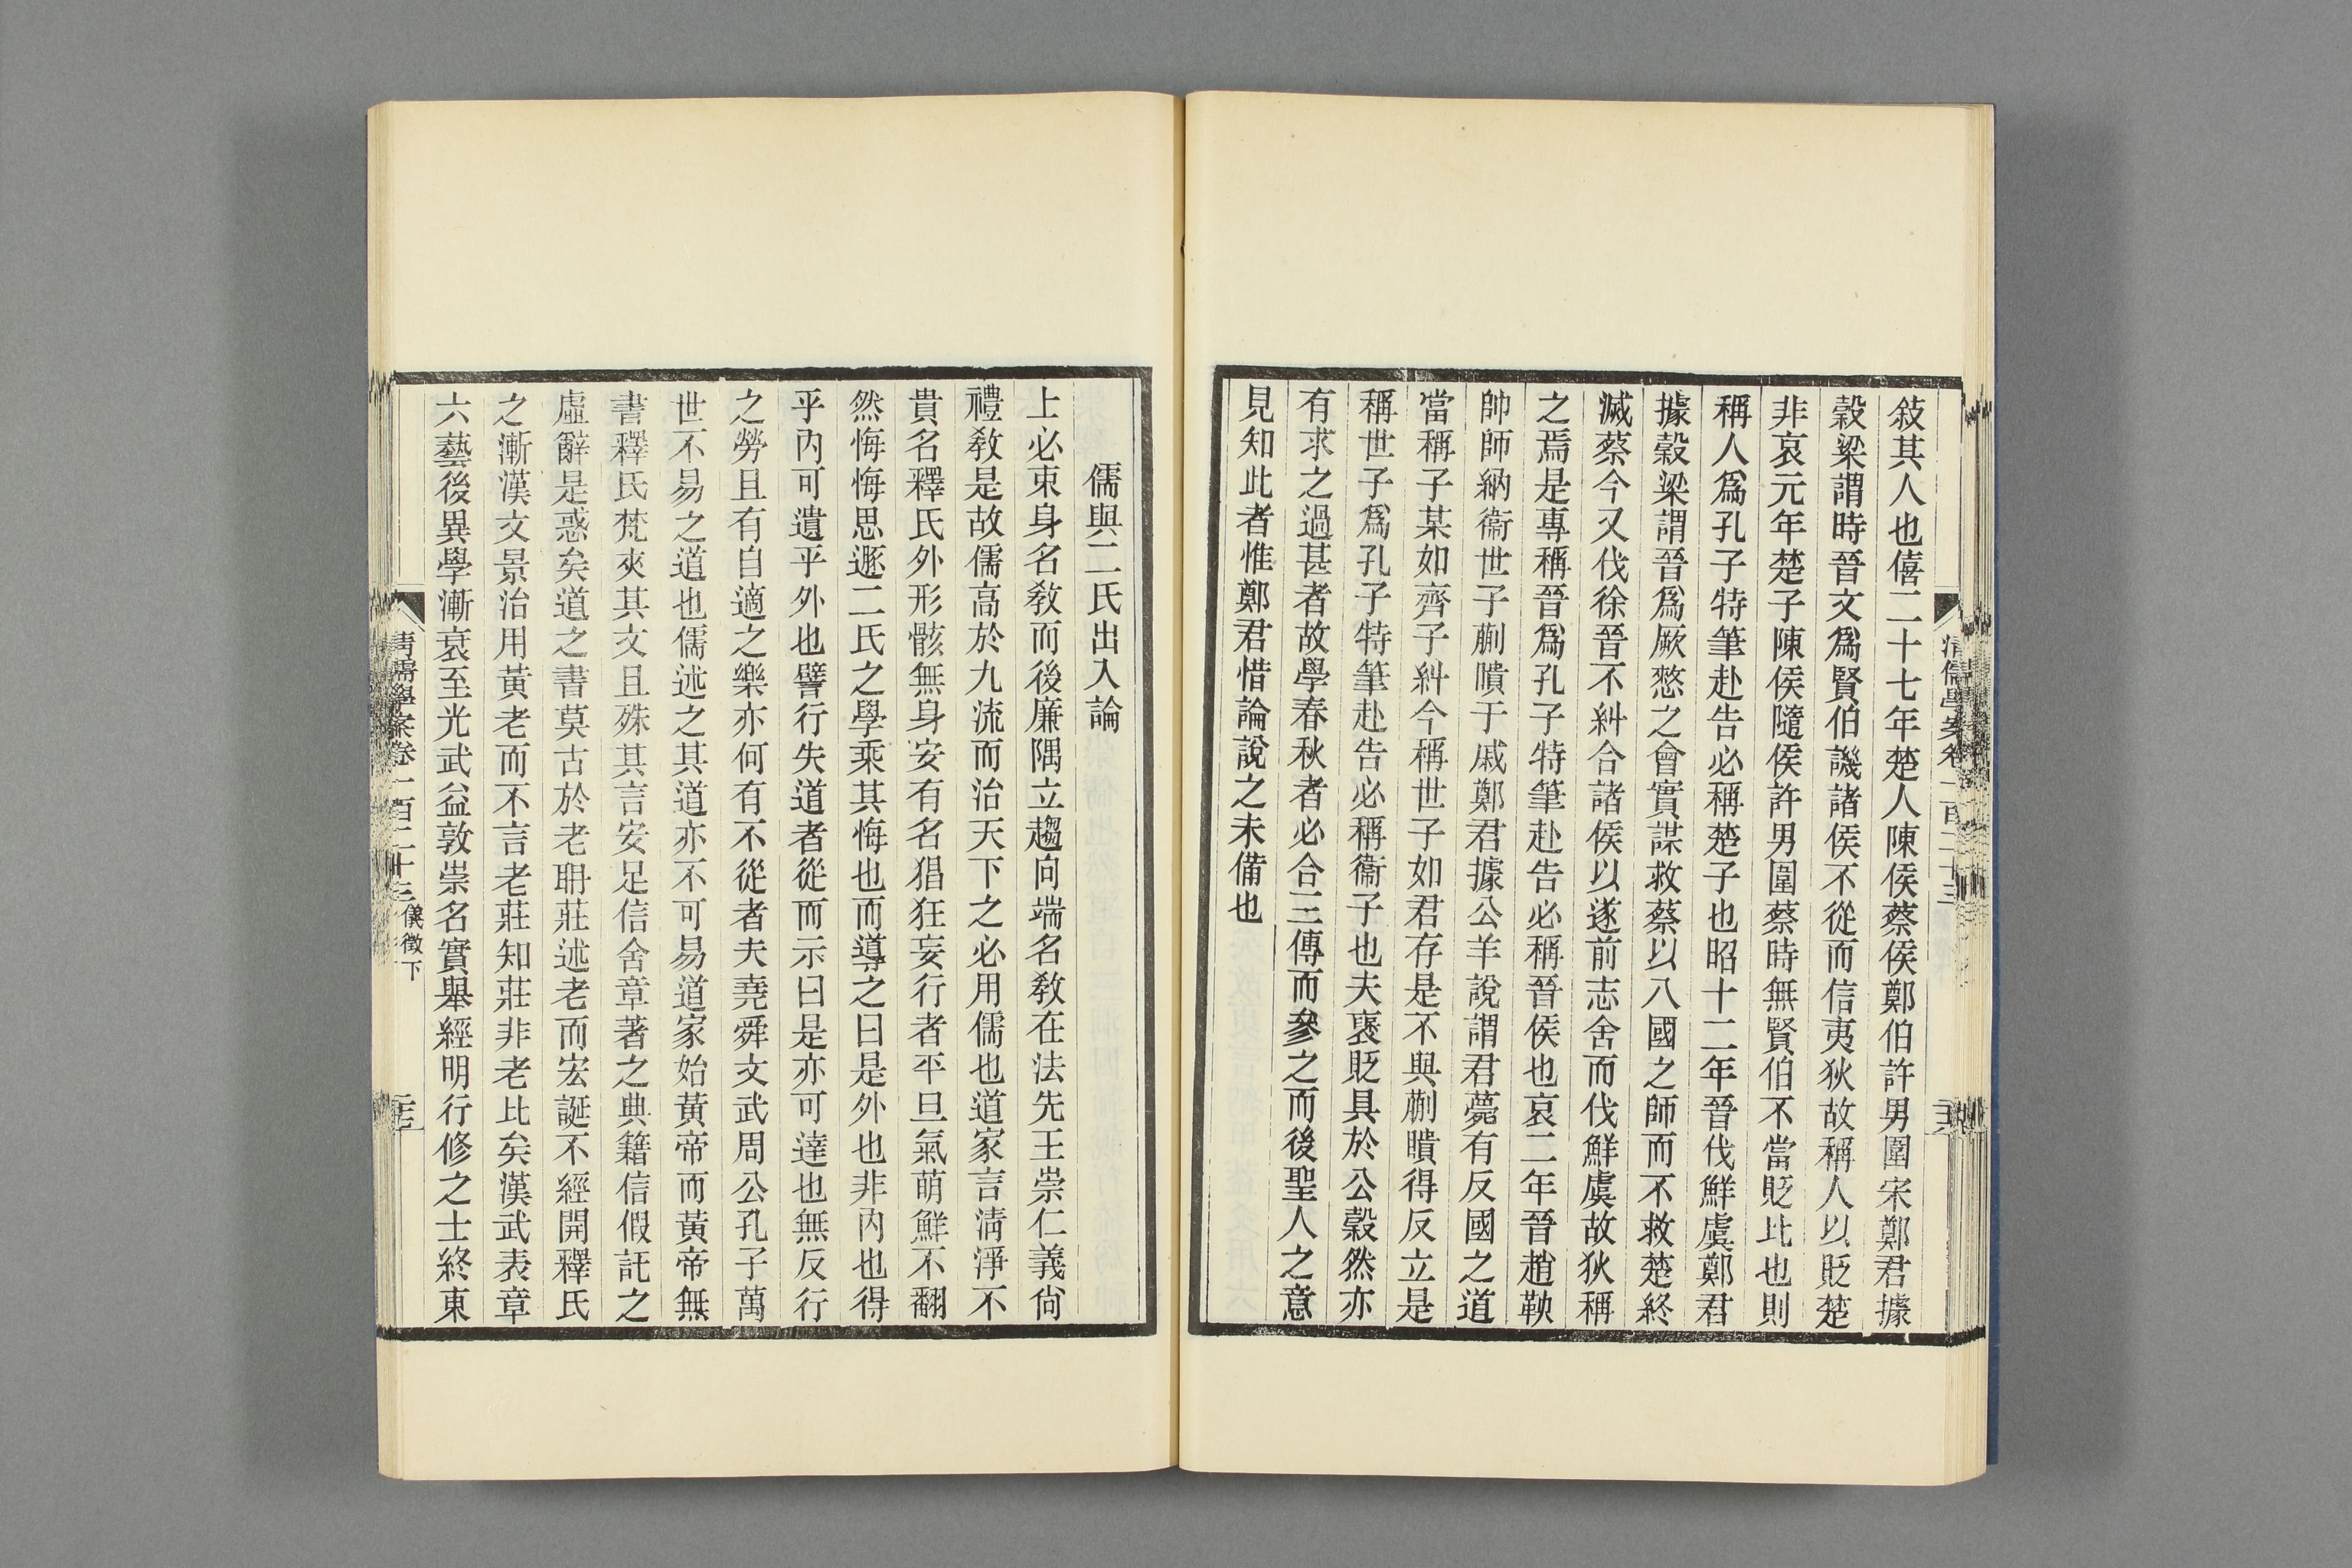 敍其人也僖二十七年楚人陳侯蔡侯鄭伯許男圍宋鄭君據
穀梁謂時晉文爲賢伯譏諸侯不從而信夷狄故稱人以貶楚
非哀元年楚子陳侯隨侯許男圍蔡時無賢伯不當貶比也則
稱人爲孔子特筆赴告必稱楚子也昭十二年晉伐鮮虞鄭君
據穀梁謂晉爲厥憖之會實謀救蔡以八國之師而不救楚終
滅蔡今又伐徐晉不糾合諸侯以遂前志舍而伐鮮虞故狄稱
之焉是專稱晉爲孔子特筆赴告必稱晉侯也哀二年晉趙鞅
帥師納衞世子蒯聵于戚鄭君據公羊說謂君薨有反國之道
當稱子某如齊子糾今稱世子如君存是不與蒯聵得反立是
稱世子爲孔子特筆赴告必稱衞子也夫襃貶具於公穀然亦
有求之過甚者故學春秋者必合三傳而參之而後聖人之意
見知此者惟鄭君惜論說之未備也
儒與二氏出入論
上必束身名敎而後廉隅立趨向端名敎在法先王崇仁義尙
禮敎是故儒高於九流而治天下之必用儒也道家言淸淨不
貴名釋氏外形骸無身安有名猖狂妄行者平旦氣萌鮮不翻
然悔悔思遯二氏之學乘其悔也而導之曰是外也非內也得
乎內可遺乎外也譬行失道者從而示曰是亦可達也無反行
之勞且有自適之樂亦何有不從者夫堯舜文武周公孔子萬
世不易之道也儒述之其道亦不可易道家始黃帝而黃帝無
書釋氏梵夾其文且殊其言安足信舍章著之典籍信假託之
虛辭是惑矣道之書莫古於老聃莊述老而宏誕不經開釋氏
之漸漢文景治用黃老而不言老莊知莊非老比矣漢武表章
六藝後異學漸衰至光武益敦崇名實舉經明行修之士終東
清儒學案卷一百二十三 儀徵下